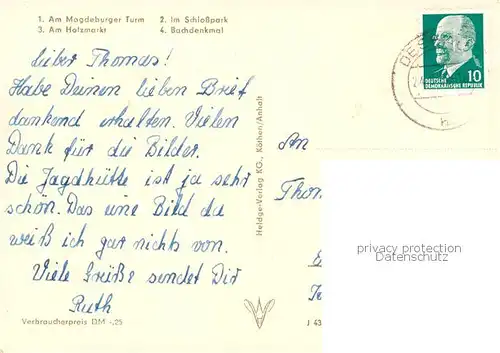 1. Am Magdeburger Turm 2. Im Schloßpark
3. Am Holzmarkt 4. Bachdenkmal
Lieber Thomas!
Habe Deinen lieben Brief
dankend erhalten. Vielen
Dank für die Bilder.
Die Jagdhütte ist ja sehr
schön. Das eine Bild da
weiß ich gar nichts von.
Viele Grüße sendet Dir
Ruth
Verbraucherpreis DM -,25
Heldge-Verlag KG., Köthen/Anhalt
DES
10
DEUTSCHE
DEMOKRATISCHE REPUBLIK
An
Thom
privacy protection
Datenschutz
J 43